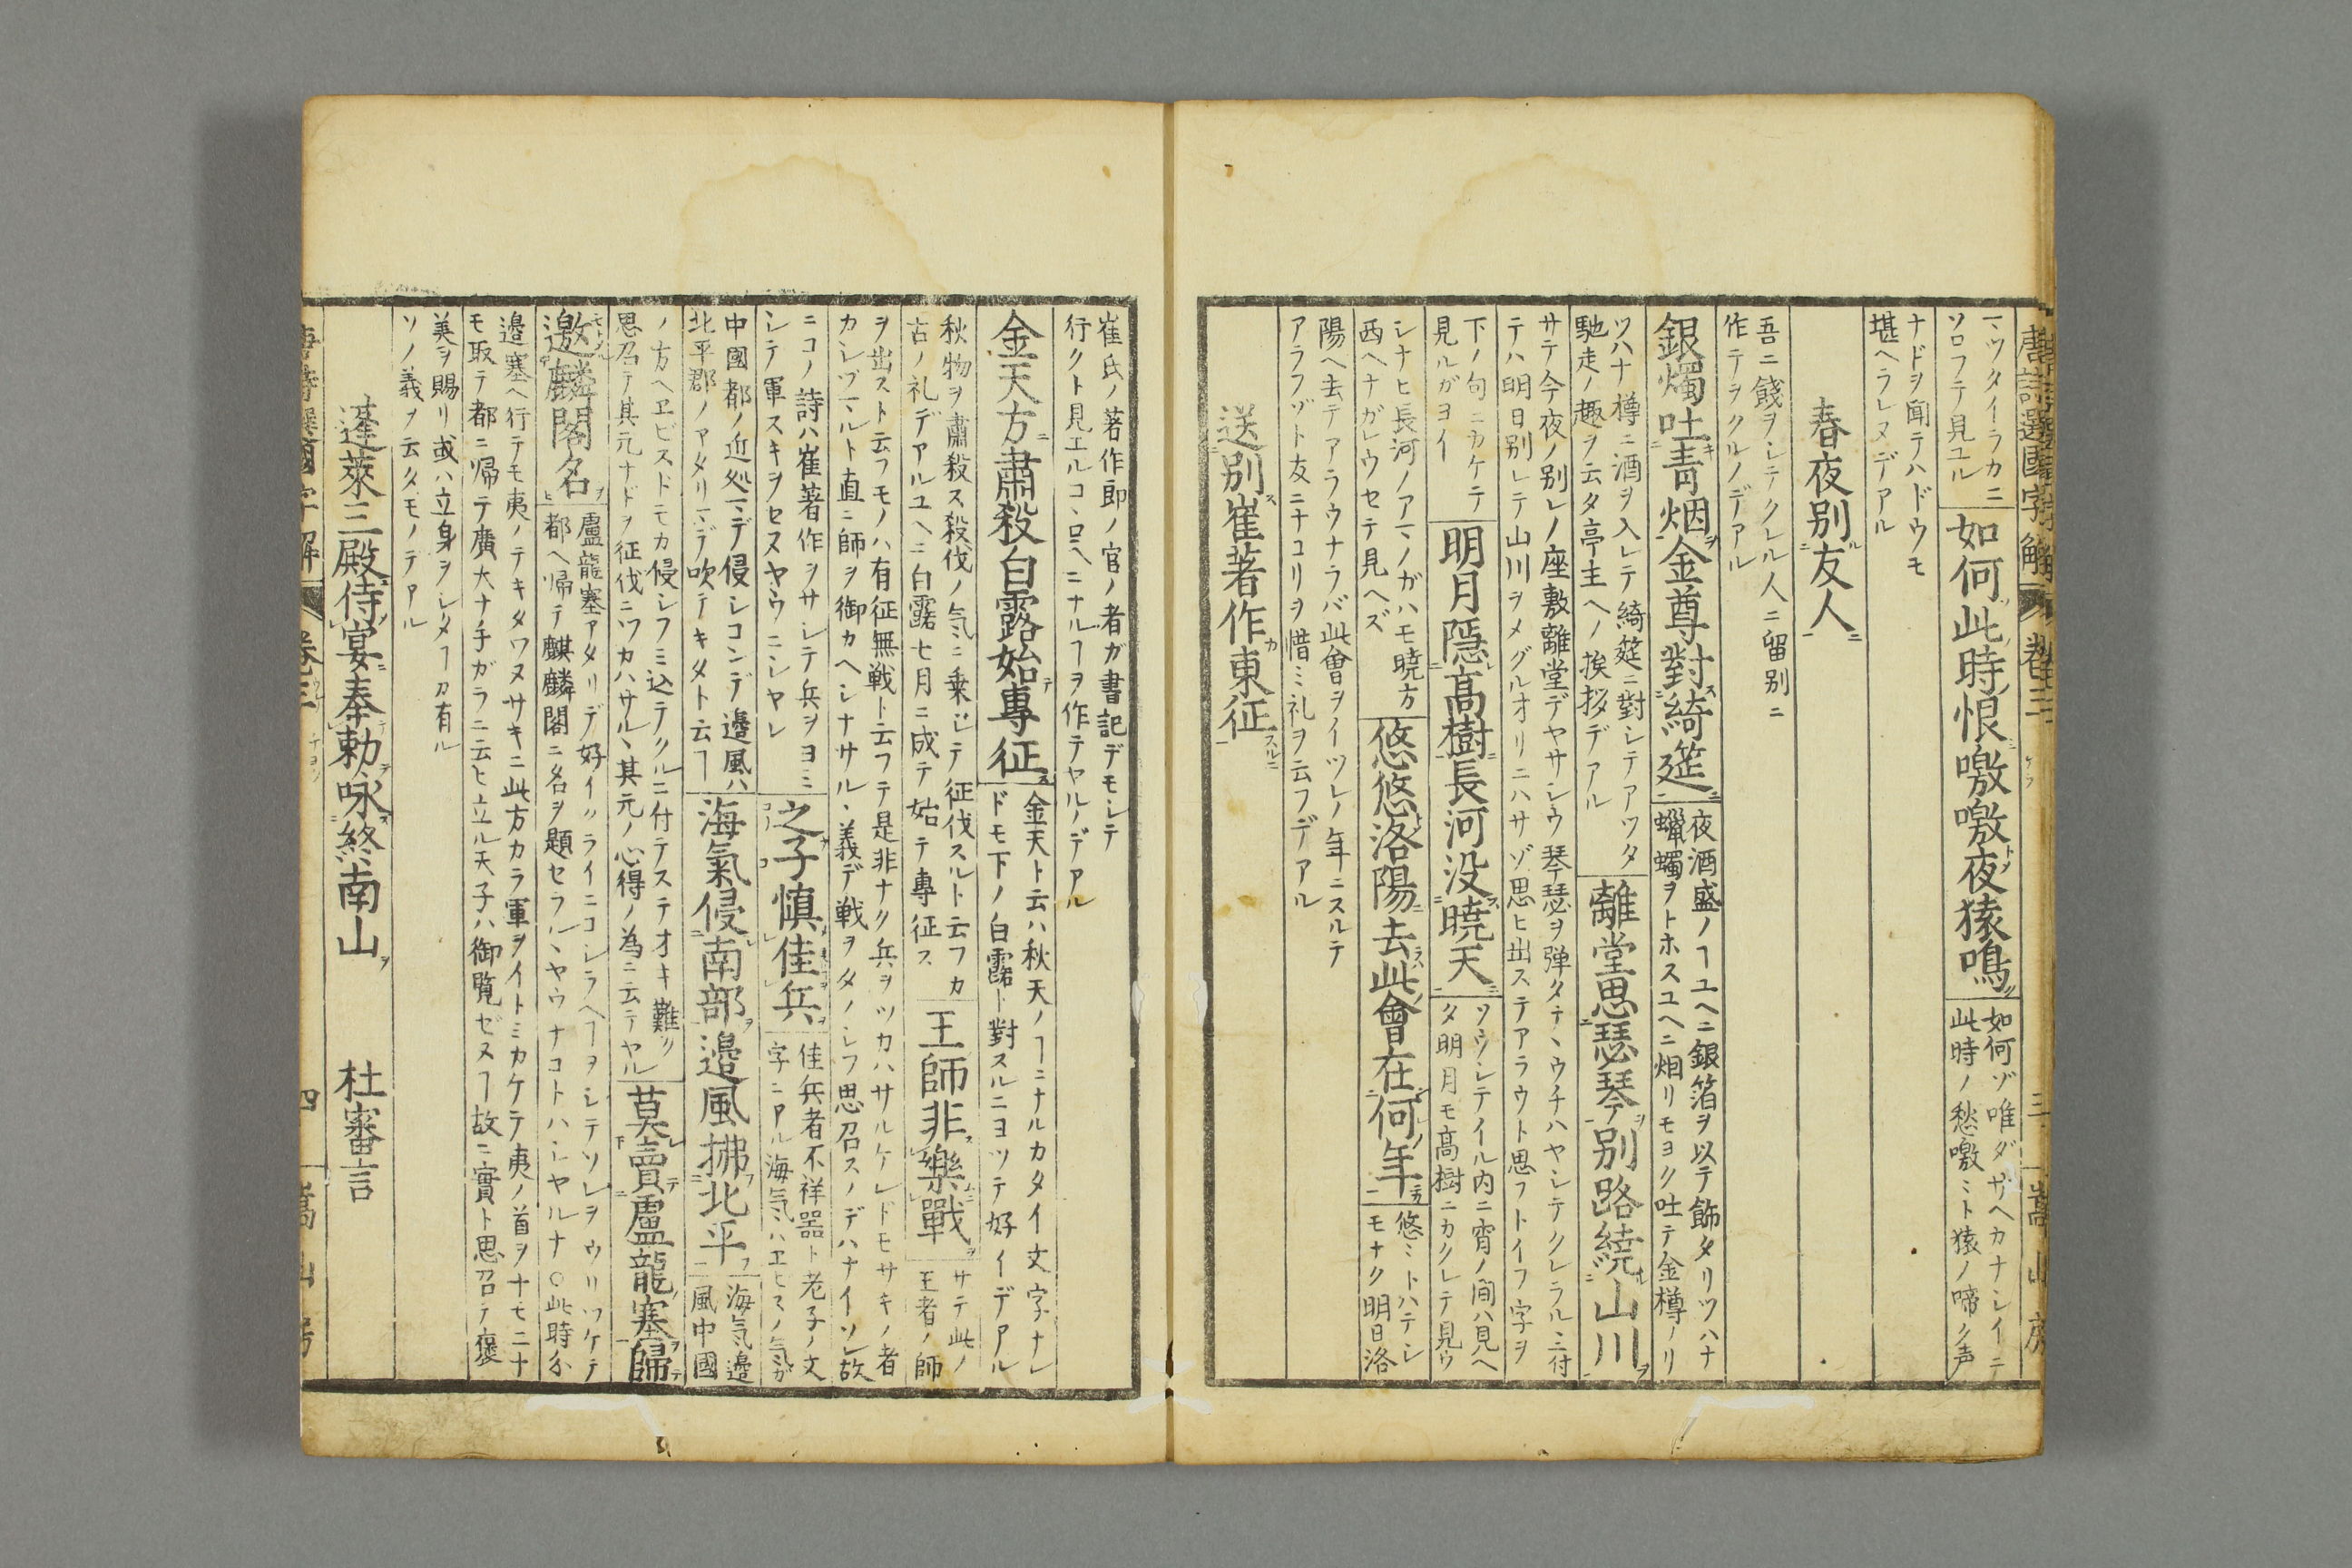 唐詩選國字解 卷三 三 嵩山房
マッタイラカニ
ソロフテ見ユル
如何此時恨噭噭夜猿鳴
如何ゾ唯ダサヘカナシイニ
此時ノ愁噭ミト猿ノ啼ク声
ナドヲ聞テハドウモ
堪ヘラレヌデアル
春夜別友人
吾ニ餞ヲシテクレル人ニ留別ニ
作テヲクルノデアル
銀燭吐青烟金尊對綺筵
夜酒盛ノヿユヘニ銀箔ヲ以テ飾タリツハナ
蠟蠋ヲトホスユヘニ烟リモヨク吐テ金樽ノリ
ツハナ樽ニ酒ヲ入レテ綺筵ニ對シテアツタ
馳走ノ趣ヲ云タ亭主ヘノ挨拶デアル
離堂思瑟琴別路繞山川
サテ今夜ノ別レノ座敷離堂デヤサシウ琴瑟ヲ弾タテヽウチハヤシテクレラルヽニ付
テハ明日別レテ山川ヲメグルオリニハサゾ思ヒ出ステアラウト思フトイフ字ヲ
下ノ句ニカケテ
見ルガヨイ
明月隠髙樹長河没曉天
ソウシテイル内ニ宵ノ間ハ見ヘ
タ明月モ髙樹ニカクレテ見ウ
シナヒ長河ノアマノガハモ曉方
西ヘナガレウセテ見ヘズ
悠悠洛陽去此會在何年
悠ミトハテシ
モナク明日洛
陽ヘ去テアラウナラバ此會ヲイツレノ年ニスルテ
アラフゾト友ニナコリヲ惜ミ礼ヲ云フデアル
送別崔著作東征
崔氏ノ著作郎ノ官ノ者ガ書記デモシテ
行クト見エルコヽロヘニナルヿヲ作テヤルノデアル
金天方肅殺白露始專征
金天ト云ハ秋天ノヿニナルカタイ文字ナレ
ドモ下ノ白露ト對スルニヨツテ好イデアル
秋物ヲ肅殺ス殺伐ノ気ニ乗ジテ征伐スルト云フカ
古ノ礼デアルユヘニ白露七月ニ成テ始テ專征ス
王師非樂戰
サテ此ノ
王者ノ師
ヲ出ストト云フモノハ有征無戦ト云フテ是非ナク兵ヲツカハサルケレドモサキノ者
カンヅマルト直ニ師ヲ御カヘシナサルヽ義デ戦ヲタノシフ思召スノデハナイソレ故
ニコノ詩ハ崔著作ヲサシテ兵ヲヨミ
シテ軍スキヲセヌヤウニシヤレ
之子愼佳兵
佳兵者不祥器ト老子ノ文
字ニアル海気ハヱヒスノ気ガ
中國都ノ近処マデ侵シコンデ邉風ハ
北平郡ノアタリマデ吹テキタト云ヿ
海氣侵南部邉風拂北平
海気邉
風中國
ノ方ヘヱビスドモカ侵シフミ込テクルニ付テステオキ難ツ
思召テ其元ナドヲ征伐ニツカハサルヽ其元ノ心得ノ為ニ云テヤル
莫賣盧龍塞歸
邀麟閣名
盧龍塞アタリデ好イクライニコシラヘヿヲシテソレヲウリツケテ
都ヘ帰テ麒麟閣ニ名ヲ題セラルヽヤウナコトハシヤルナ○此時分
邉塞ヘ行テモ夷ノテキタワヌサキニ此方カラ軍ヲイトミカケテ夷ノ首ヲナモニナ
モ取テ都ニ帰テ廣大ナ手ガラニ云ヒ立ル天子ハ御覧ゼヌヿ故ニ實ト思召テ褒
美ヲ賜リ或ハ立身ヲシタヿカ有ル
ソノ義ヲ云タモノテアル
蓬萊三殿侍宴奉勅咏終南山 杜審言
唐詩選國字解 卷三 四 嵩山房